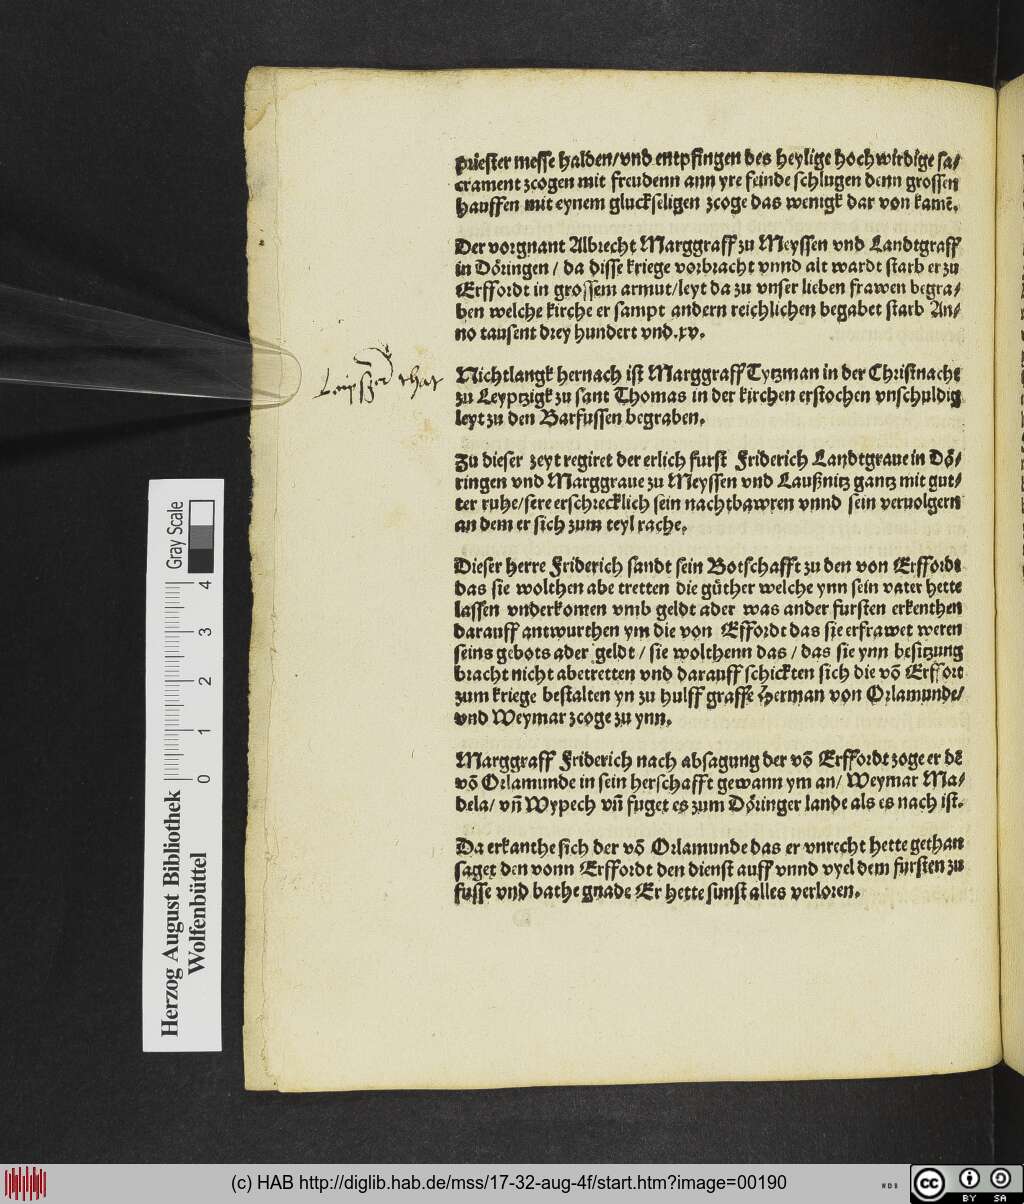 priester messe halden/vnd entpfingen des heylige hochwirdige sa/
crament zcogen mit freudenn ann yre feinde schlugen denn grossen
hauffen mit eynem gluckseligen zcoge das wenigk dar von kamē.
Der vorgnant Albrecht Marggraff zu Meyssen vnd Landtgraff
in Döringen / da disse kriege vorbracht vnnd alt wardt starb er zu
Erffordt in grossem armut/leyt da zu vnser lieben frawen begra/
ben welche kirche er sampt andern reichlichen begabet starb An/
no tausent drey hundert vnd.xv.
Leipßer that
Nichtlangk hernach ist Marggraff Tytzman in der Christnacht
zu Leyptzigk zu sant Thomas in der kirchen erstochen vnschuldig
leyt zu den Barfussen begraben.
Zu dieser zeyt regiret der erlich furst Friderich Landtgraue in Dö/
ringen vnd Marggraue zu Meyssen vnd Laußnitz gantz mit gut/
ter ruhe/sere erschrecklich sein nachtbawren vnnd sein veruolgern
an dem er sich zum teyl rache.
Dieser herre Friderich sandt sein Botschafft zu den von Erffordt
das sie wolthen abe tretten die güther welche ynn sein vater hette
lassen vnderkomen vmb geldt ader was ander fursten erkenthen
darauff antwurthen ym die von Effordt das sie erfrawet weren
seins gebots ader geldt / sie wolthenn das / das sie ynn besitzung
bracht nicht abetretten vnd darauff schickten sich die vō Erffort
zum kriege bestalten yn zu hulff graffe Herman von Orlamunde/
vnd Weymar zcoge zu ynn.
Marggraff Friderich nach absagung der vō Erffordt zoge er dē
vō Orlamunde in sein herschafft gewann ym an/ Weymar Ma/
dela/ vn̄ Wypech vn̄ fuget es zum Döringer lande als es nach ist.
Da erkanthe sich der vō Orlamunde das er vnrecht hette gethan
saget den vonn Erffordt den dienst auff vnnd vyel dem fursten zu
fusse vnd bathe gnade Er hette sunst alles verloren.
Herzog August Bibliothek
Wolfenbüttel
Gray Scale
0 1 2 3 4
(c) HAB http://diglib.hab.de/mss/17-32-aug-4f/start.htm?image=00190
WDB
cc BY SA